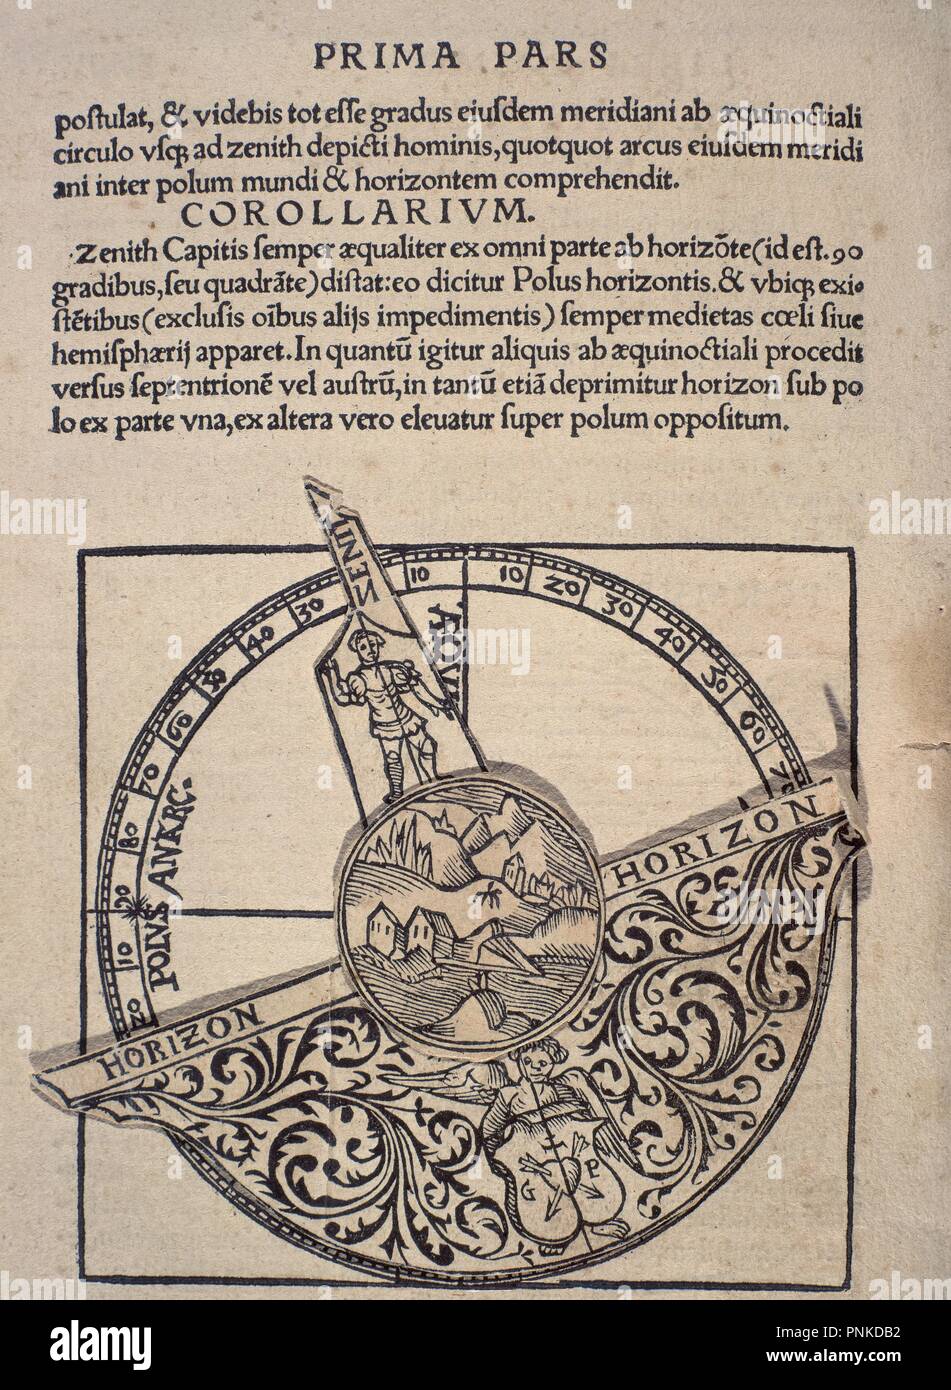 PRIMA PARS
poſtulat, & videbis tot eſſe gradus eiuſdem meridiani ab æquinoctiali
circulo vſqꝫ ad zenith depicti hominis,quotquot arcus eiuſdem meridi
ani inter polum mundi & horizontem comprehendit.
COROLLARIVM.
Zenith Capitis ſemper æqualiter ex omni parte ab horizõte(id eſt.90
gradibus,ſeu quadrãte)diſtat:eo dicitur Polus horizontis.& vbiqꝫ exi⸗
ſtẽtibus(excluſis oĩbus alijs impedimentis)ſemper medietas cœli ſiue
hemiſphærij apparet.In quantũ igitur aliquis ab æquinoctiali procedit
verſus ſeptentrionẽ vel auſtrũ,in tantũ etiã deprimitur horizon ſub po
lo ex parte vna,ex altera vero eleuatur ſuper polum oppoſitum.
10 10 20 30 40 50 60 70
30 40 50 60 70 80 90 10 20
ÆQVI
POLVS ANTARC.
HORIZON
HORIZON
G P
alamy
Image ID: PNKDB2
www.alamy.com